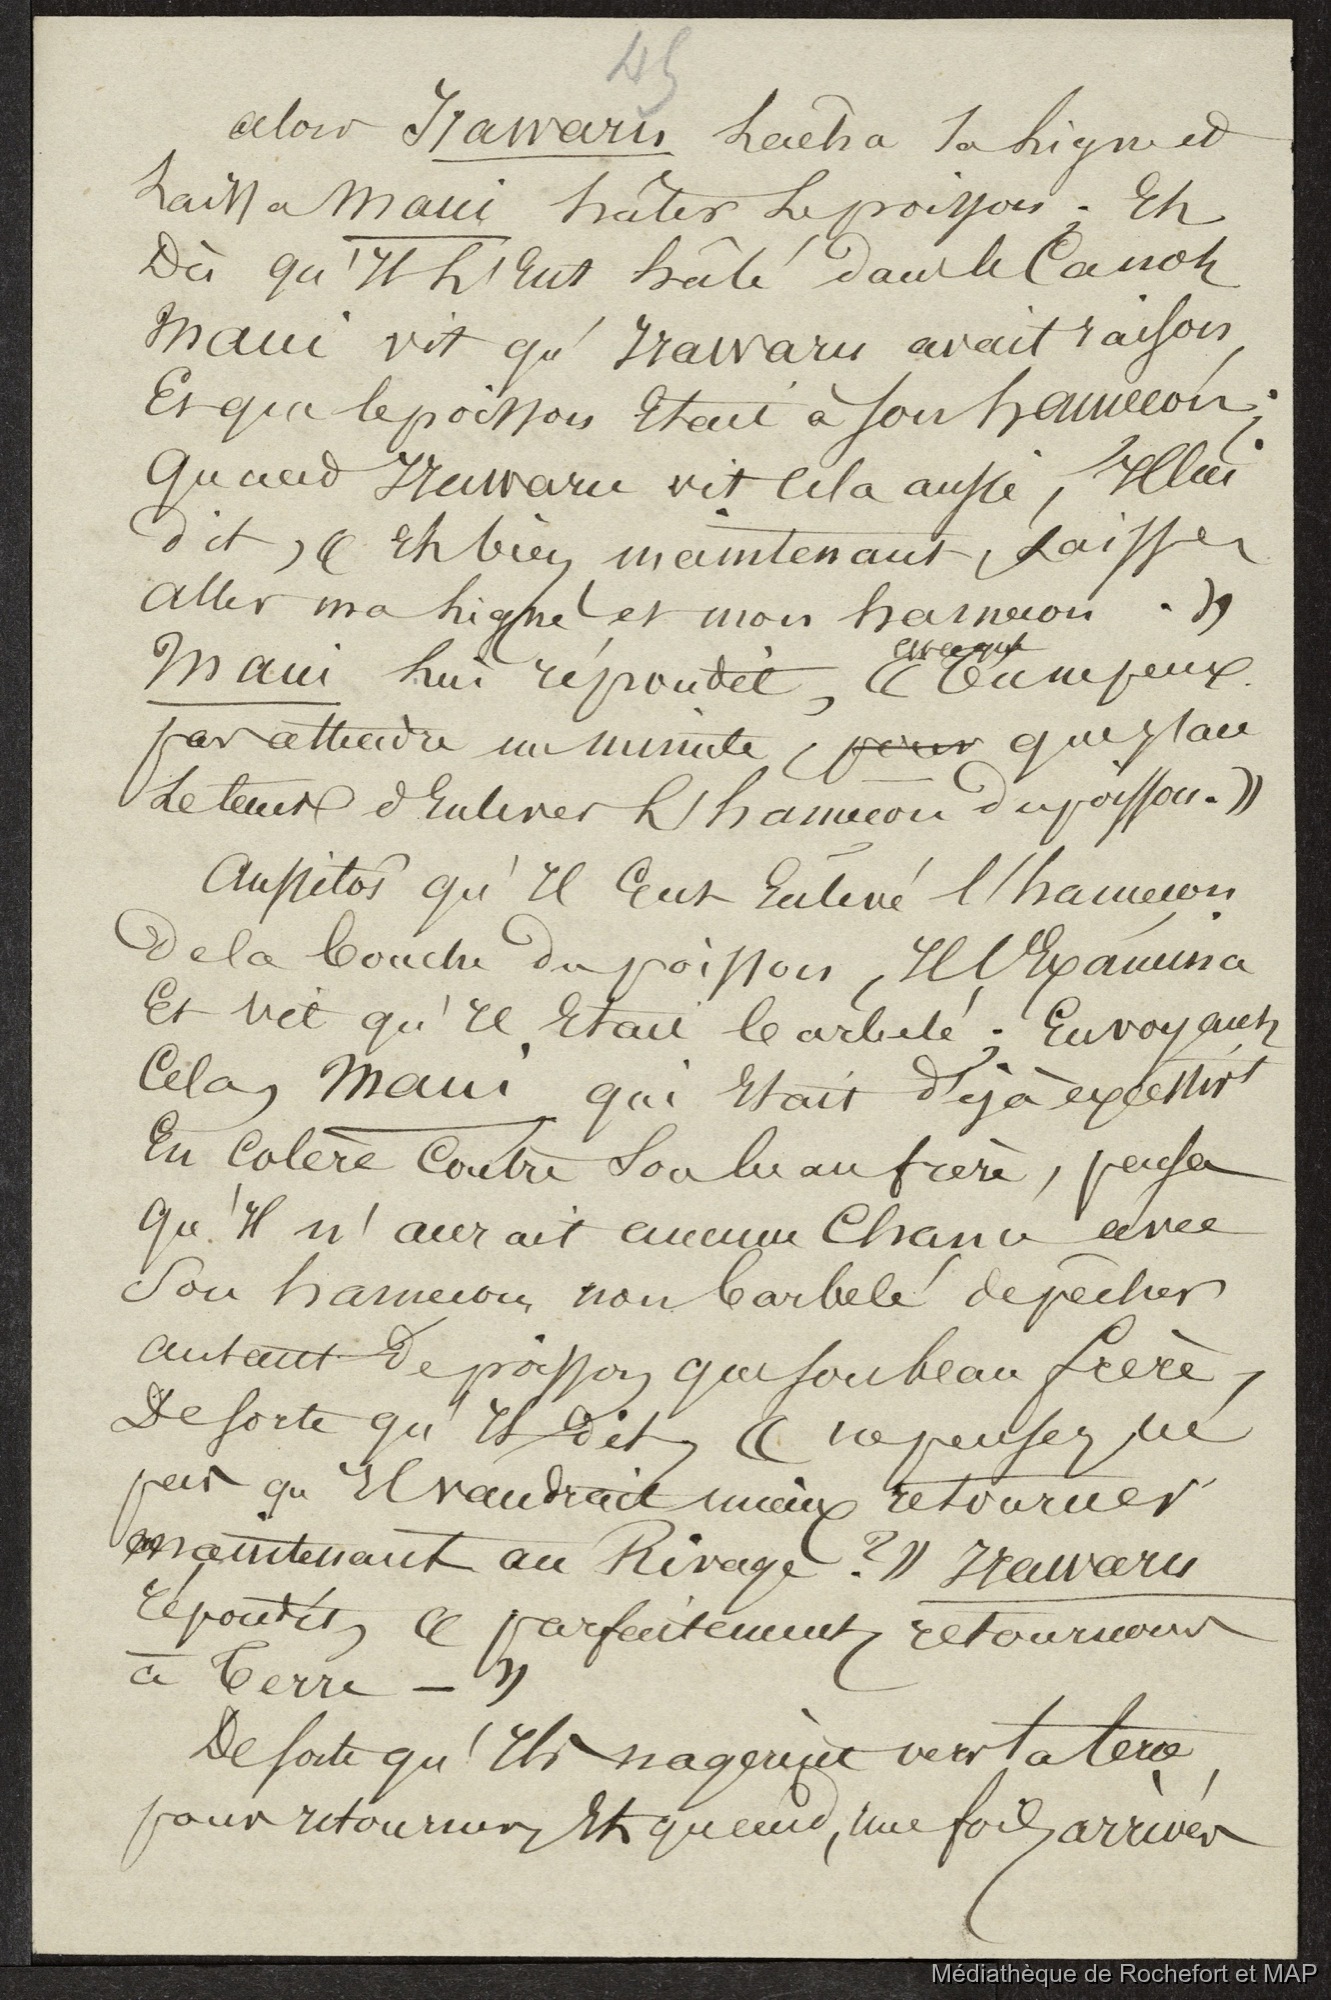 45
alors Irawaru Lacha sa Ligne et
Laissa Maui hâler Le poisson ; Et
Dès qu'Il L'Eut hâlé dans le Canot
Maui vit qu' Irawaru avait raison,
Et que le poisson Etait à son hamecon ;
Quand Irawaru vit Cela aussi, Il lui
dit, « Eh bien maintenant, Laissez
aller ma Ligne et mon hamecon . »
Maui Lui répondit, « Tu ne peux
pas attendre une minute, pour que j'aie
Le temps d'Enlever L'hamecon du poisson. »
Aussitôt qu'Il Eut Enlevé l'hamecon
De la bouche du poisson, Il l'Examina
Et vit qu'Il Etait barbelé ; En voyant
Cela, Maui qui Etait déjà excessivt
En Colère Contre Son beau frère, pensa
qu'Il n'aurait aucune Chance avec
Son hamecon non barbelé de pêcher
autant De poisson que son beau frère,
De sorte qu'Il dit, « ne pensez vs
pas qu'Il vaudrait mieux retourner
maintenant au Rivage ? » Irawaru
répondit, « parfaitement, retournons
à Terre — »
De sorte qu'Ils nagèrent vers la terre,
pour retourner, Et quand, une fois, arrivés
Médiathèque de Rochefort et MAP